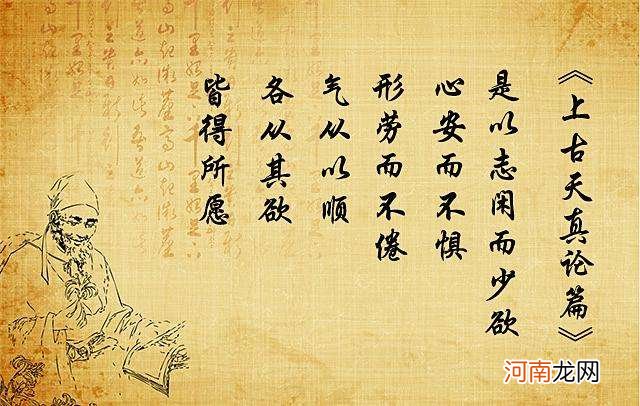 《上古天真论篇》
是以志闲而少欲
心安而不惧
形劳而不倦
气从以顺
各从其欲
皆得所愿
河南龙网